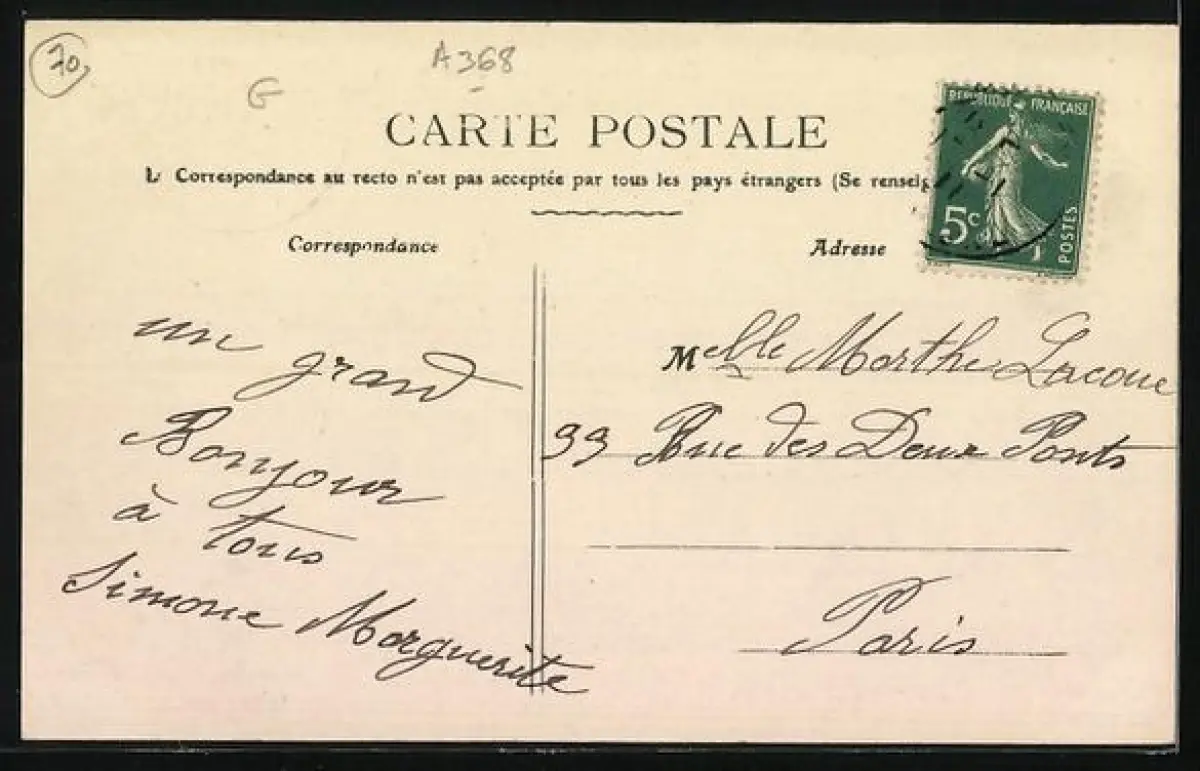 70
A368
G
CARTE POSTALE
La Correspondance au recto n'est pas acceptée par tous les pays étrangers (Se renseig
Correspondance
Adresse
REPUBLIQUE FRANÇAISE
5c
POSTES
un grand
Bonjour
à tous
Simone Marguerite
Melle Marthe Lacoue
33 Rue des Deux Ponts
Paris